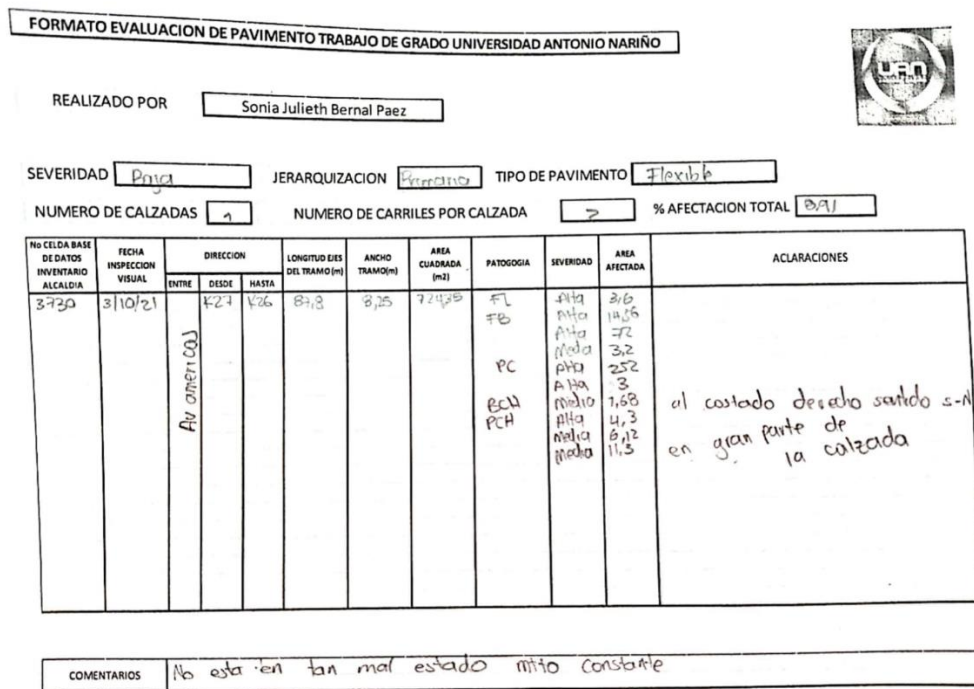 FORMATO EVALUACION DE PAVIMENTO TRABAJO DE GRADO UNIVERSIDAD ANTONIO NARIÑO
UAN
REALIZADO POR Sonia Julieth Bernal Paez
SEVERIDAD Baja JERARQUIZACION Primaria TIPO DE PAVIMENTO Flexible
NUMERO DE CALZADAS 1 NUMERO DE CARRILES POR CALZADA 2 % AFECTACION TOTAL 8,91
No CELDA BASE DE DATOS INVENTARIO ALCALDIA FECHA INSPECCION VISUAL DIRECCION ENTRE DESDE HASTA LONGITUD EJES DEL TRAMO (m) ANCHO TRAMO(m) AREA CUADRADA (m2) PATOGOGIA SEVERIDAD AREA AFECTADA ACLARACIONES
3730 3/10/21 Av americas K27 K26 87,8 8,25 724,35 FL Alta 3,6
FB Alta 14,56
Alta 72
Media 3,2
PC Alta 252
Alta 3
BCH Media 1,68 al costado derecho sentido S-N
PCH Alta 4,3 en gran parte de
Media 6,12 la calzada
Media 11,3
COMENTARIOS No esta en tan mal estado mtto constante